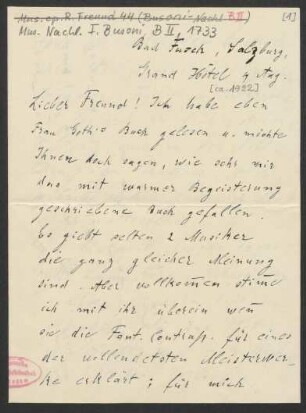 Mus. ep. R. Freund 44 (Busoni-Nachl. BII)
[1]
Mus. Nachl. F. Busoni, B II, 1733
Bad Fusch, Salzburg,
Grand Hôtel 4 Aug.
[ca. 1922]
Lieber Freund! Ich habe eben
Frau Buch gelesen u. möchte
Ihnen doch sagen, wie sehr mir
das mit warmer Begeisterung
geschriebene Buch gefallen.
Es giebt selten 2 Musiker
die ganz gleicher Meinung
sind. Aber vollkom̄en stim̄e
ich mit ihr überein wen̄
sie die Fant. Contrap. für eines
der vollendetsten Meisterwer-
ke erklärt; für mich